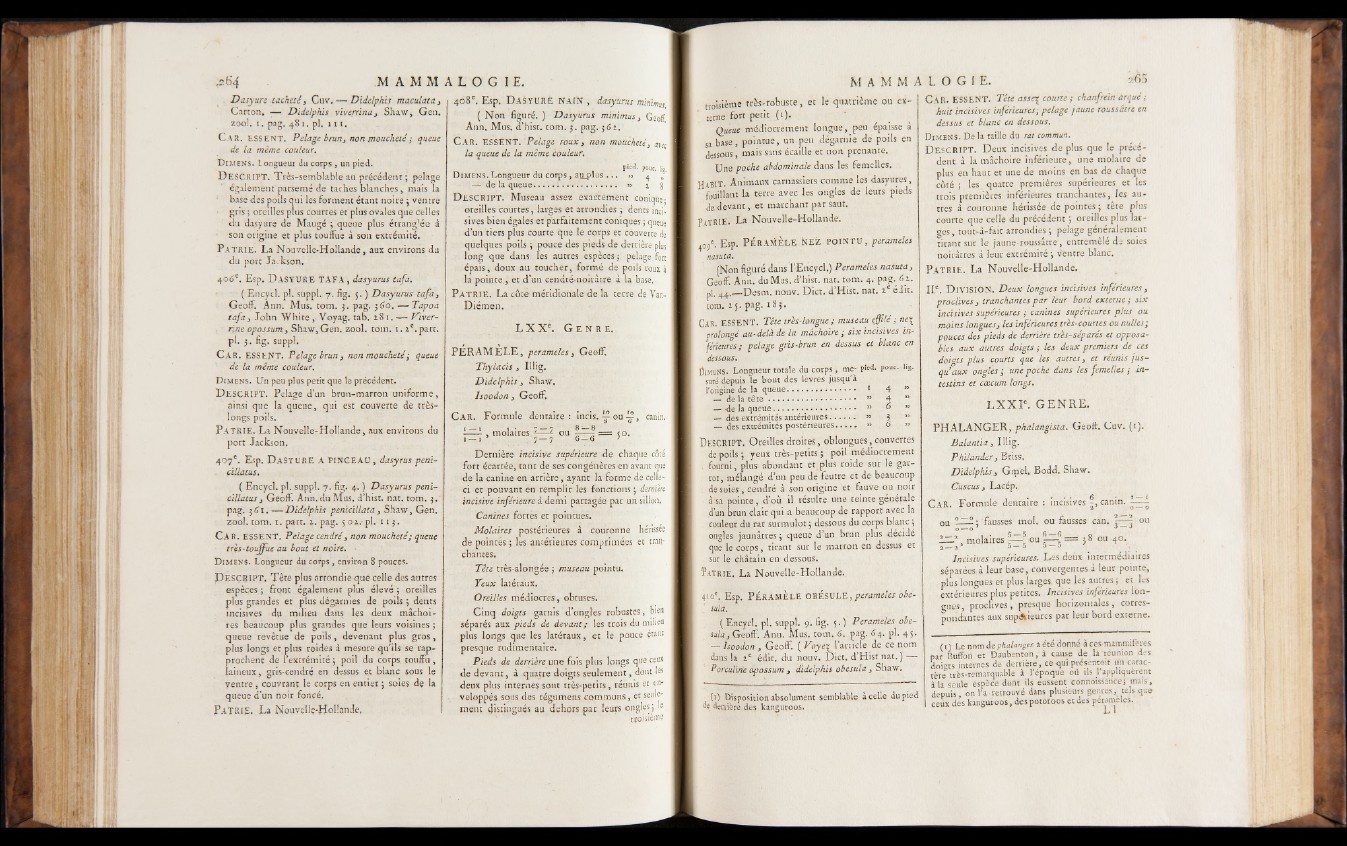 264 MAMMALOGIE.
Dasyure tacheté, Cuv. — Didelphis maculata,
Carton. — Didelphis viverrina, Shaw, Gen.
zool. 1. pag. 481. pl. 111.
CAR. ESSENT. Pelage brun, non moucheté; queue
de la même couleur.
DIMENS. Longueur du corps, un pied.
DESCRIPT. Très-semblable au précédent; pelage
également parsemé de taches blanches, mais la
base des poils qui les forment étant noire; ventre
gris; oreilles plus courtes et plus ovales que celles
du dasyure de Maugé; queue plus étranglée à
son origine et plus touffue à son extrémité.
PATRIE. La Nouvelle-Hollande, aux environs du
du port Jackson.
406e. Esp. DASYURE TAFA, dasyurus tafa.
( Encycl. pl. suppl. 7. fig. 5. ) Dasyurus tafa,
Geoff. Ann. Mus. tom. 3. pag. 360. — Tapoa
tafa, John White, Voyag. tab. 281. — Viver-
rine opossum, Shaw, Gen. zool. tom. 1. 2e. part.
pl. 3. fig. suppl.
CAR. ESSENT. Pelage brun, non moucheté; queue
de la même couleur.
DIMENS. Un peu plus petit que le précédent.
DESCRIPT. Pelage d'un brun-marron uniforme,
ainsi que la queue, qui est couverte de très-
longs poils.
PATRIE. La Nouvelle-Hollande, aux environs du
port Jackson.
407e. Esp. DASYURE A PINCEAU, dasyrus peni-
cillatus.
( Encycl. pl. suppl. 7. fig. 4. ) Dasyurus peni-
cillatus, Geoff. Ann. du Mus. d'hist. nat. tom. 3.
pag. 361. — Didelphis penicillata, Shaw, Gen.
zool. tom. 1. part. 2. pag. 502. pl. 113.
CAR. ESSENT. Pelage cendré, non moucheté; queue
très-touffue au bout et noire.
DIMENS. Longueur du corps, environ 8 pouces.
DESCRIPT. Tête plus arrondie que celle des autres
espèces; front également plus élevé; oreilles
plus grandes et plus dégarnies de poils; dents
incisives du milieu dans les deux mâchoi-
res beaucoup plus grandes que leurs voisines;
queue revêtue de poils, devenant plus gros,
plus longs et plus roides à mesure qu'ils se rap-
prochent de l'extrémité; poil du corps touffu,
laineux, gris-cendré en dessus et blanc sous le
ventre, couvrant le corps en entier; soies de la
queue d'un noir foncé.
PATRIE. La Nouvelle-Hollande.
408e. Esp. DASYURE NAIN, dasyurus minimus.
( Non figuré. ) Dasyurus minimus, Geoff.
Ann. Mus. d'hist. tom. 3. pag. 362.
CAR. ESSENT. Pelage roux, non moucheté, avec
la queue de la même couleur.
pied. pouc. lig.
DIMENS. Longueur du corps, au plus... » 4 »
— de la queue................. » 2 8
DESCRIPT. Museau assez exactement conique;
oreilles courtes, larges et arrondies; dents inci-
sives bien égales et parfaitement coniques; queue
d'un tiers plus courte que le corps et couverte de
quelques poils; pouce des pieds de derrière plus
long que dans les autres espèces; pelage fort
épais, doux au toucher, formé de poils roux à
la pointe, et d'un cendré-noirâtre à la base.
PATRIE. La côte méridionale de la terre de Van-
Diémen.
LXXe. GENRE.
PÉRAMÈLE, perameles, Geoff.
Thylacis, Illig.
Didelphis, Shaw.
Isoodon, Geoff.
CAR. Formule dentaire : incis. 10/8 ou 10/6, canin.
1—1/1—1, molaires 7—7/7—7 ou 8—8/6—6 = 50.
Dernière incisive supérieure de chaque côté
fort écartée, tant de ses congénères en avant que
de la canine en arrière, ayant la forme de celle-
ci et pouvant en remplir les fonctions; dernière
incisive inférieure à demi partagée par un sillon.
Canines fortes et pointues.
Molaires postérieures à couronne hérissée
de pointes; les antérieures comprimées et tran-
chantes.
Tête très-alongée; museau pointu.
Yeux latéraux.
Oreilles médiocres, obtuses.
Cinq doigts garnis d'ongles robustes, bien
séparés aux pieds de devant; les trois du milieu
plus longs que les latéraux, et le pouce étant
presque rudimentaire.
Pieds de derrière une fois plus longs que ceux
de devant, à quatre doigts seulement, dont les
deux plus internes sont très-petits, réunis et en-
veloppés sous des tégumens communs, et seule-
ment distingués au dehors par leurs ongles; le
troisième
MAMMALOGIE. 265
troisième très-robuste, et le quatrième ou ex-
terne fort petit (1).
Queue médiocrement longue, peu épaisse à
sa base, pointue, un peu dégarnie de poils en
dessous, mais sans écaille et non prenante.
Une poche abdominale dans les femelles.
HABIT. Animaux carnassiers comme les dasyures,
fouillant la terre avec les ongles de leurs pieds
de devant, et marchant par saut.
PATRIE. La Nouvelle-Hollande.
409e. Esp. PÉRAMÈLE NEZ POINTU, perameles
nasuta.
(Non figuré dans l'Encycl.) Perameles nasuta,
Geoff. Ann. du Mus. d'hist. nat. tom. 4. pag. 62.
pl. 44.—Desm. nouv. Dict. d'Hist. nat. 2e édit.
tom. 25. pag. 183.
CAR. ESSENT. Tête très-longue; museau effilé; nez
prolongé au-delà de la mâchoire; six incisives in-
férieures; pelage gris-brun en dessus et blanc en
dessous.
DIMENS. Longueur totale du corps, me- pied. pouc. lig.
suré depuis le bout des lèvres jusqu'à
l'origine de la queue............... 1 4 »
— de la tête.................. » 4 »
— de la queue................. » 6 »
— des extrémités antérieures...... » 3 »
— des extrémités postérieures..... » 6 »
DESCRIPT. Oreilles droites, oblongues, couvertes
de poils; yeux très-petits; poil médiocrement
fourni, plus abondant et plus roide sur le gar-
rot, mélangé d'un peu de feutre et de beaucoup
de soies, cendré à son origine et fauve ou noir
à sa pointe, d'où il résulte une teinte générale
d'un brun clair qui a beaucoup de rapport avec la
couleur du rat surmulot; dessous du corps blanc;
ongles jaunâtres; queue d'un brun plus décidé
que le corps, tirant sur le marron en dessus et
sur le châtain en dessous.
PATRIE. La Nouvelle-Hollande.
410e. Esp. PÉRAMÈLE OBÉSULE, perameles obe-
sula.
( Encycl. pl. suppl. 9. fig. 5.) Perameles obe-
sula, Geoff. Ann. Mus. tom. 6. pag. 64. pl. 45.
— Isoodon, Geoff. ( Voyez l'article de ce nom
dans la 2e édit. du nouv. Dict. d'Hist nat. ) —
Porculine opossum, didelphis obesula, Shaw.
(1) Disposition absolument semblable à celle du pied
de derrière des kanguroos.
CAR. ESSENT. Tête assez courte; chanfrein arqué;
huit incisives inférieures; pelage jaune roussâtre en
dessus et blanc en dessous.
DIMENS. De la taille du rat commun.
DESCRIPT. Deux incisives de plus que le précé-
dent à la mâchoire inférieure, une molaire de
plus en haut et une de moins en bas de chaque
côté; les quatre premières supérieures et les
trois premières inférieures tranchantes, les au-
tres à couronne hérissée de pointes; tête plus
courte que celle du précédent; oreilles plus lar-
ges, tout-à-fait arrondies; pelage généralement
tirant sur le jaune-roussâtre, entremêlé de soies
noirâtres à leur extrémité; ventre blanc.
PATRIE. La Nouvelle-Hollande.
IIe. DIVISION. Deux longues incisives inférieures,
proclives, tranchantes par leur bord externe; six
incisives supérieures; canines supérieures plus ou
moins longues, les inférieures très-courtes ou nulles;
pouces des pieds de derrière très-séparés et opposa-
bles aux autres doigts; les deux premiers de ces
doigts plus courts que les autres, et réunis jus-
qu'aux ongles; une poche dans les femelles; in-
testins et cœcum longs.
LXXIe. GENRE.
PHALANGER, phalangista. Geoff. Cuv. (1).
Balantia, Illig.
Philander, Briss.
Didelphis, Gmel. Bodd. Shaw.
Cuscus, Lacép.
CAR. Formule dentaire : incisives 6/2, canin. 1—1/0—0
ou 0—0/0—0; fausses mol. ou fausses can. 2—2/3—3 ou
2—2/2—2, molaires 5—5/5—5 ou 6—6/5—5 = 38 ou 40.
Incisives supérieures. Les deux intermédiaires
séparées à leur base, convergentes à leur pointe,
plus longues et plus larges que les autres; et les
extérieures plus petites. Incisives inférieures lon-
gues, proclives, presque horizontales, corres-
pondantes aux supérieures par leur bord externe.
(1) Le nom de phalanger a été donné à ces mammifères
par Buffon et Daubenton, à cause de la réunion des
doigts internes de derrière, ce qui présentoit un carac-
tère très-remarquable à l'époque où ils l'appliquèrent
à la seule espèce dont ils eussent connoissance; mais,
depuis, on l'a retrouvé dans plusieurs genres, tels que
ceux des kanguroos, des potoroos et des péramèles.
L l